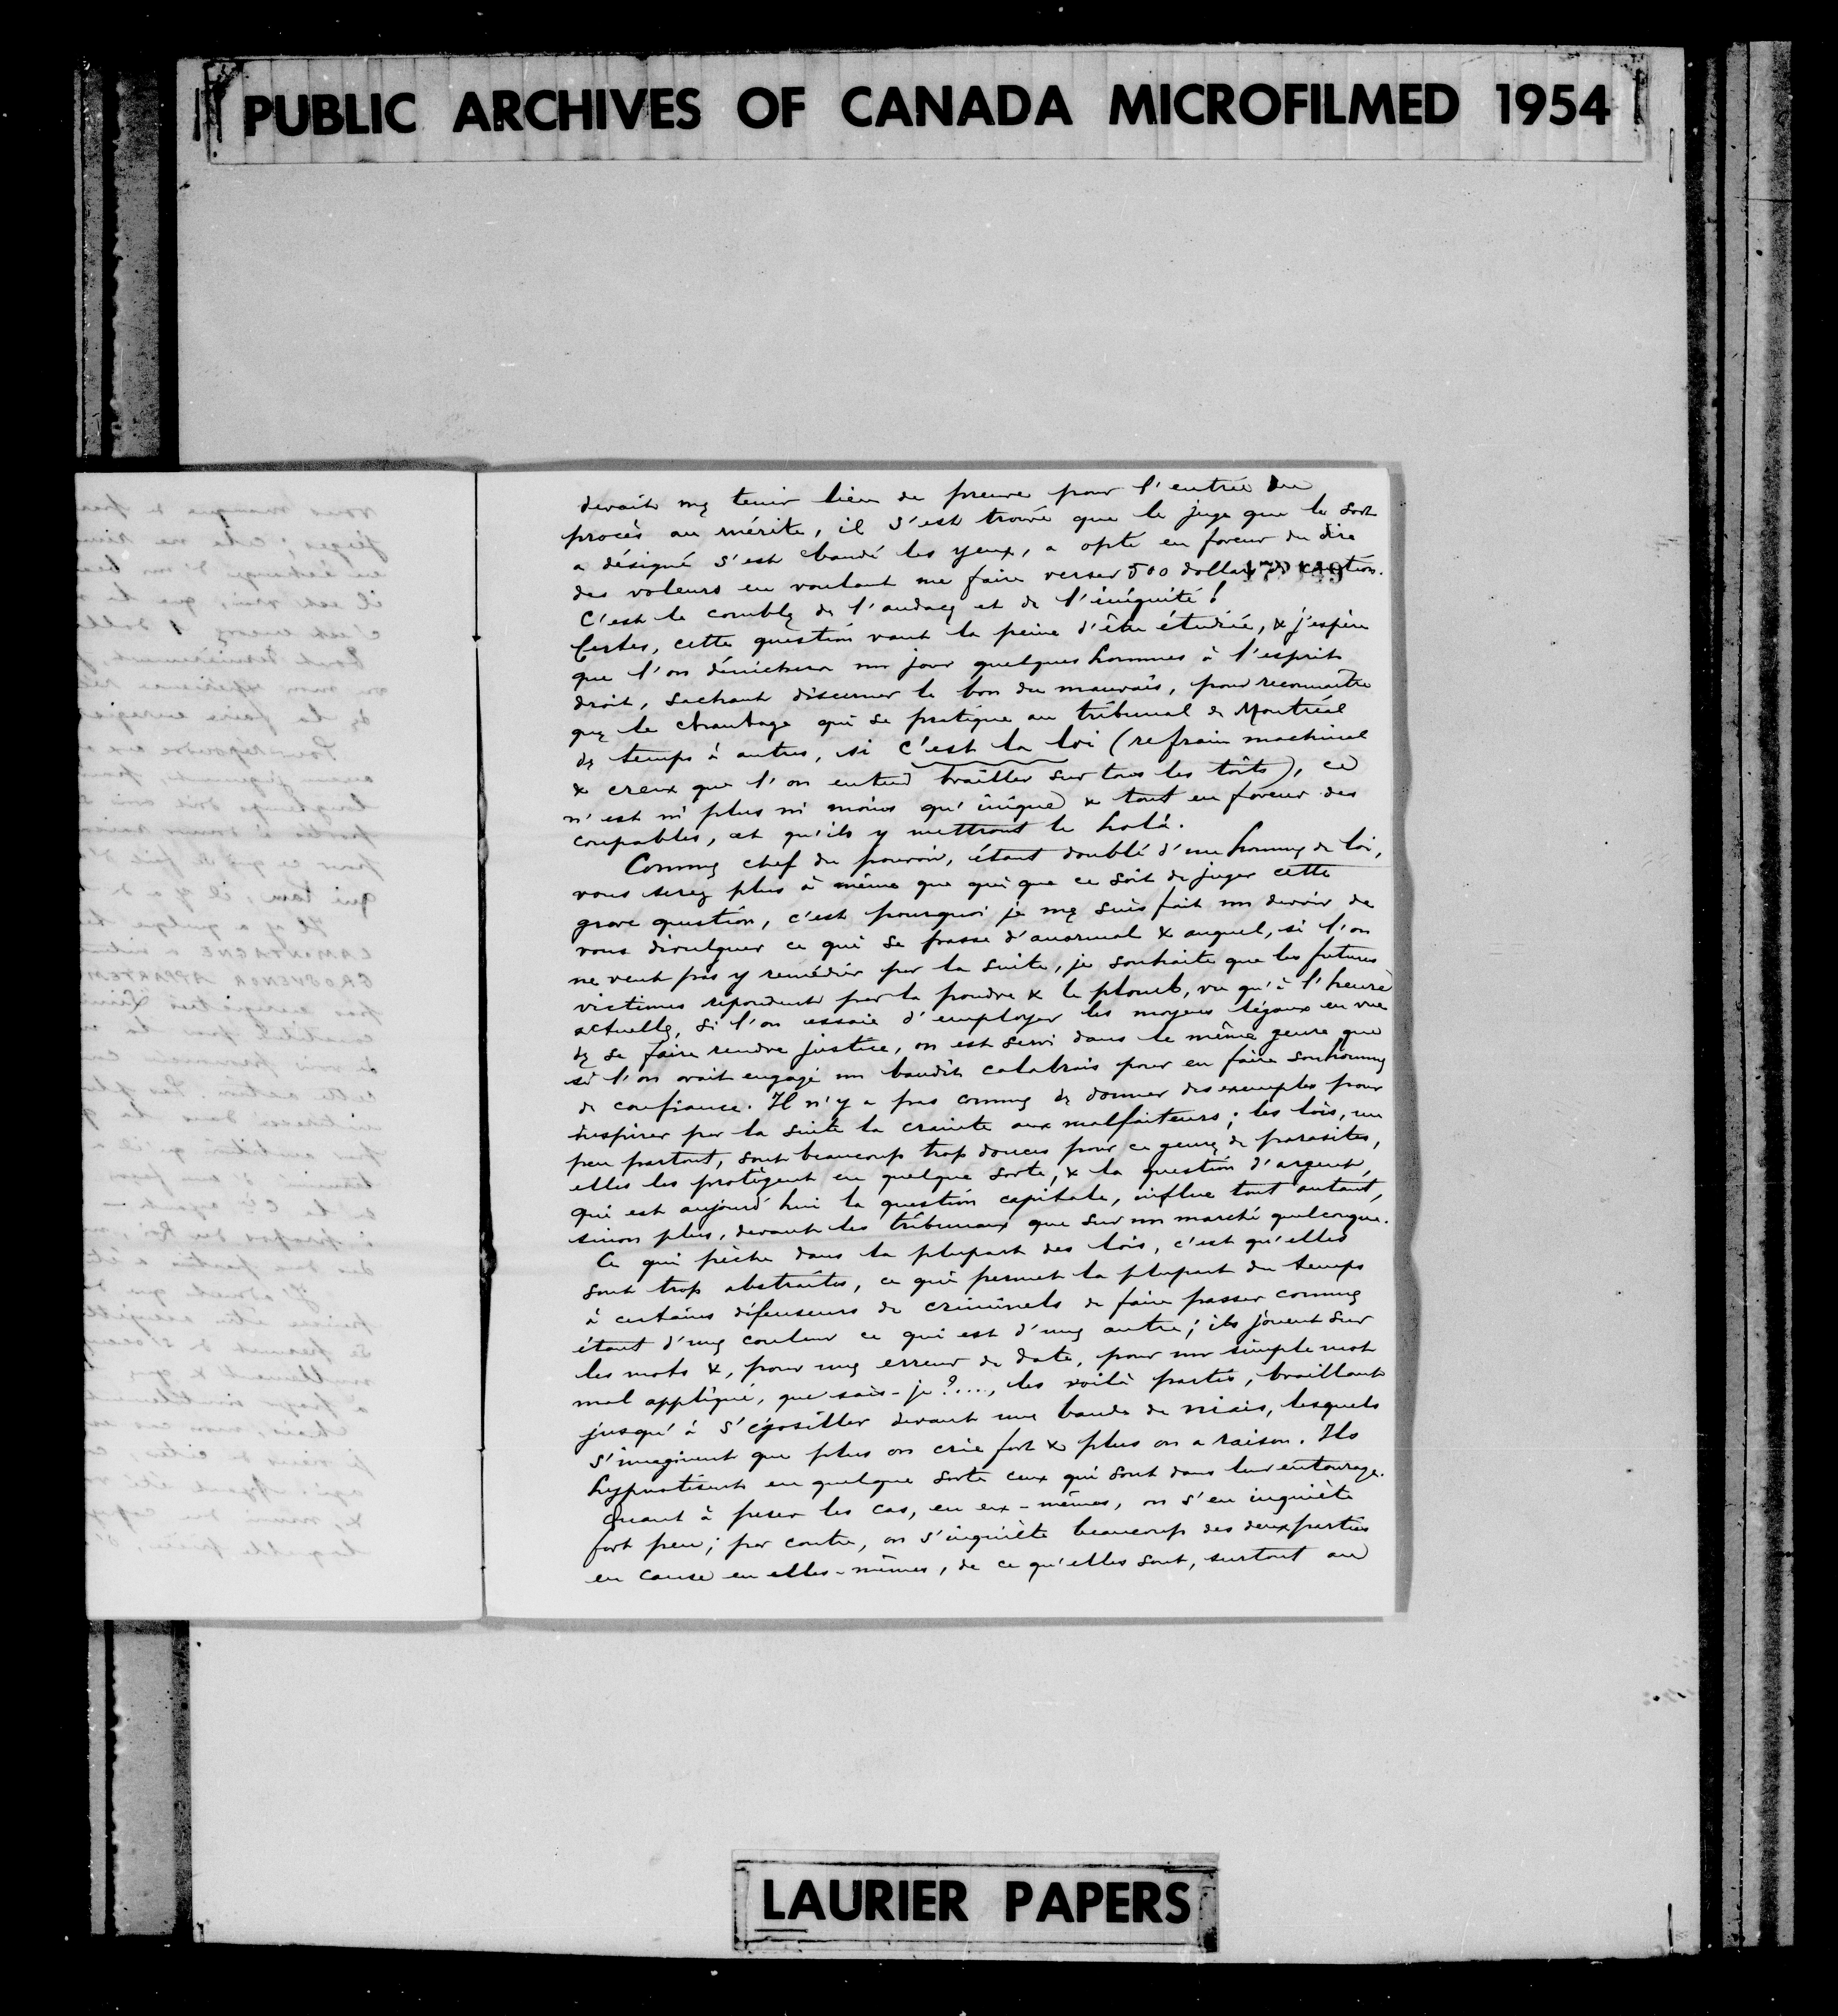 PUBLIC ARCHIVES OF CANADA MICROFILMED 1954
devait me tenir lieu de preuve pour l'entrée du
procès au mérite, il s'est trouvé que le juge que le sort
a désigné s'est bandé les yeux, a opté en faveur du dire
des voleurs en voulant me faire verser 500 dollars de caution.
C'est le comble de l'audace et de l'iniquité!
Certes, cette question vaut la peine d'être étudiée, & j'espère
que l'on dénichera un jour quelques hommes à l'esprit
droit, sachant discerner le bon du mauvais, pour reconnaître
que le chantage qui se pratique au tribunal de Montréal
de temps à autres, si c'est la loi (refrain machinal
& creux que l'on entend brailler sur tous les toits), ce
n'est ni plus ni moins qu'inique & tout en faveur des
coupables, et qu'ils y mettront le holà.
Comme chef du pouvoir, étant doublé d'un homme de loi,
vous serez plus à même que qui que ce soit de juger cette
grave question, c'est pourquoi je me suis fait un devoir de
vous divulguer ce qui se passe d'anormal & auquel, si l'on
ne veut pas y remédier par la suite, je souhaite que les futures
victimes répondent par la poudre & le plomb, vu qu'à l'heure
actuelle, si l'on essaie d'employer les moyens légaux en vue
de se faire rendre justice, on est servi dans le même genre que
si l'on avait engagé un bandit calabrais pour en faire son homme
de confiance. Il n'y a pas comme de donner des exemples pour
inspirer par la suite la crainte aux malfaiteurs; les lois, un
peu partout, sont beaucoup trop douces pour ce genre de parasites,
elles les protègent en quelque sorte, & la question d'argent,
qui est aujourd'hui la question capitale, influe tout autant,
sinon plus, devant les tribunaux que sur un marché quelconque.
Ce qui pèche dans la plupart des lois, c'est qu'elles
sont trop abstraites, ce qui permet la plupart du temps
à certains défenseurs de criminels de faire passer comme
étant d'une couleur ce qui est d'une autre; ils jouent sur
les mots &, pour une erreur de date, pour un simple mot
mal appliqué, que sais-je?...., les voilà partis, braillant
jusqu'à s'égosiller devant une bande de niais, lesquels
s'imaginent que plus on crie fort & plus on a raison. Ils
hypnotisent en quelque sorte ceux qui sont dans leur entourage.
Quant à peser les cas, en eux-mêmes, on s'en inquiète
fort peu; par contre, on s'inquiète beaucoup des deux parties
en cause en elles-mêmes, de ce qu'elles sont, surtout au
LAURIER PAPERS